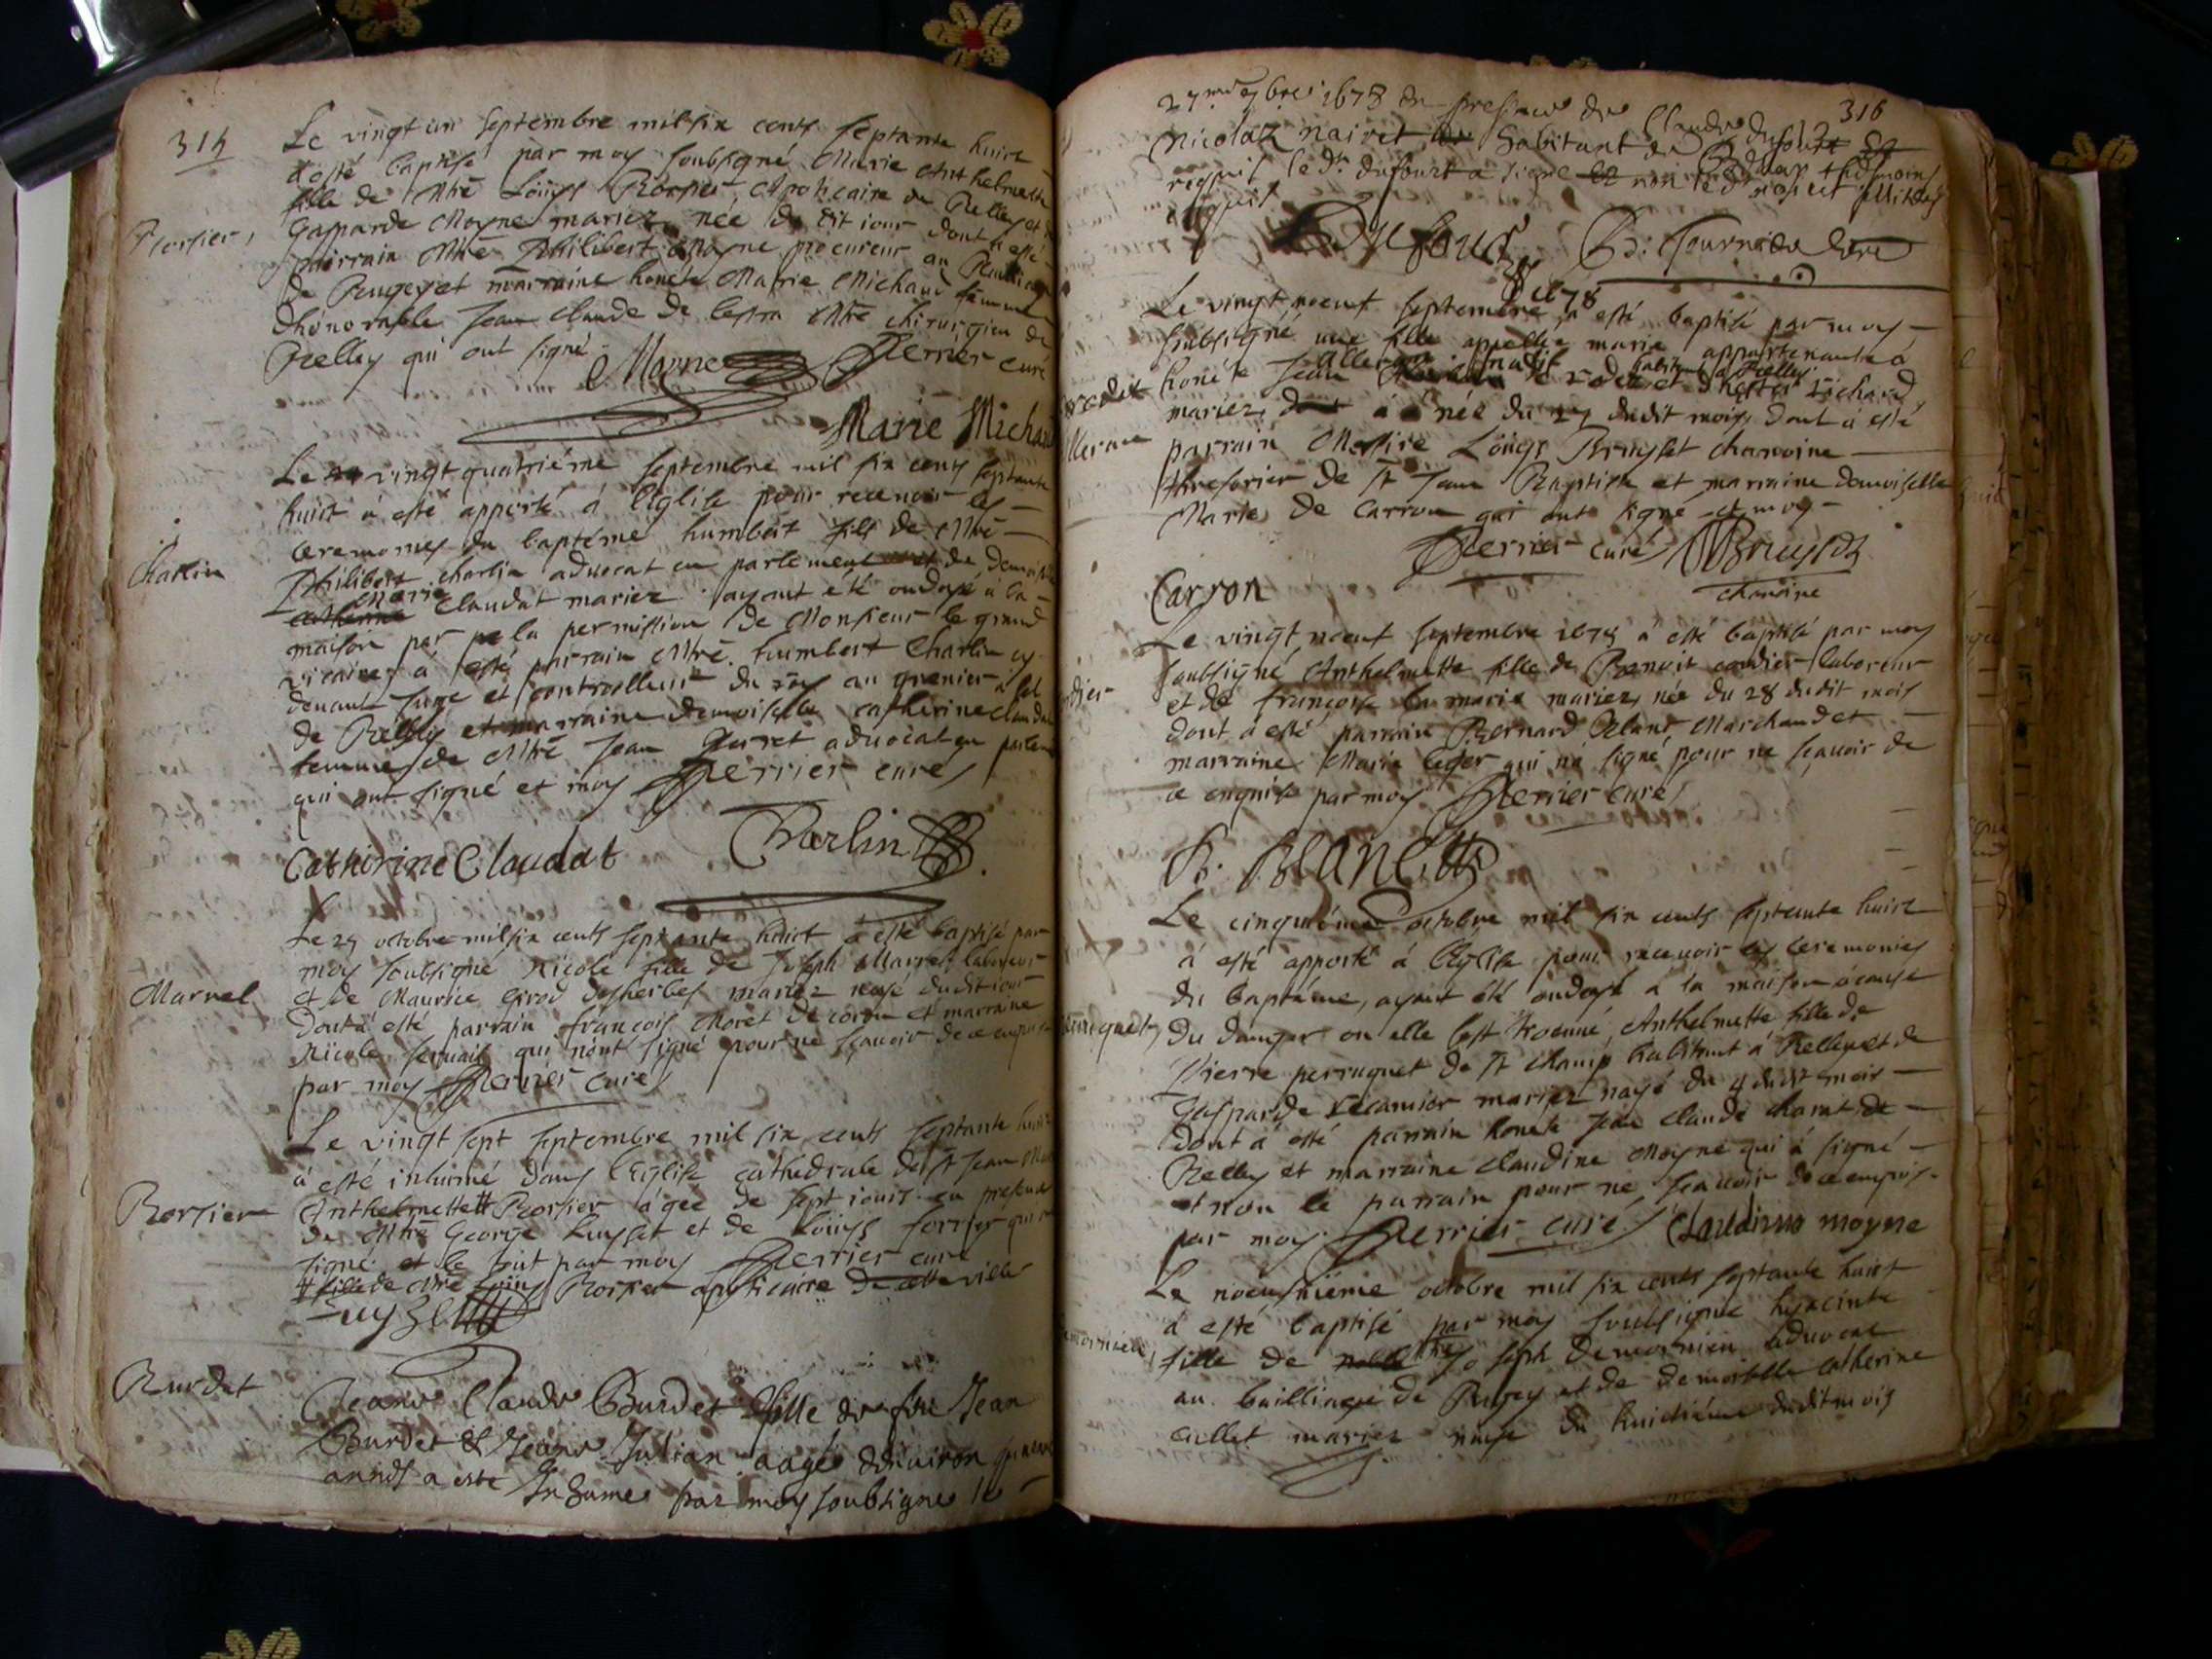 314
Le vingt un septembre mil six cents septante huict
a esté baptisé par moy soubsigné Marie Anthelmette
fille de Mtre Loüys Rorsier, Apoticaire de Belley et
Rorsier,
Gasparde Moyne mariez née du dit iour dont a esté
parrain Mtre Philibert Moyne procureur au Bailliage
de Beugey et marraine honete Marie Michaud femme
dhonorable Jean Claude de Mtre chirurgien de
Belley qui ont signé
Moyne Perrier curé
Marie Michaud
Le vingt quatriéme septembre mil six cents septante
huict à esté apporté à l'Eglise pour receuoir les
ceremonies du baptéme humbert fils de Mtre
Charlin
Philibert charlin aduocat en parlement et de Demoiselle
Marie
catherine Claudat mariez ayant été ondoyé à la
maison par la permission de Monsieur le grand
vicaire, à esté parrain Mtre humbert Charlin cy
deuant Juge et controlleur du roy au grenier à sel
de Belley et marraine demoiselle catherine Claudat
femme de Mtre Jean aduocat en parlement
qui ont signé et moy Perrier curé
Catherine Claudat Charlin
Le 25 octobre mil six cents septante huict à esté baptisé par
moy soubsigné Nicole fille de Joseph Marrel laboureur
Marrel
et de Maurice Girod desherbes mariez dudit iour
dont à esté parrain françois Moret de et marraine
Nicole qui n'ont signé pour ne sçauoir de ce enquis
par moy Perrier curé
Le vingt sept septembre mil six cents septante huict
à esté inhumé dans l'Eglise cathedrale de St Jean
Rorsier
Anthelmette # Rorsier agée de sept iours en presence
de Mtre George Luyset et de Loüys
signé et le tout par moy Perrier curé
# fille de Mtre Loüys Rorsier apoticaire de cette ville
Luyset
Burdet
Jeane Claude Burdet fille de feu Jean
Burdet & Jeane Julian aagée denuiron
annés a este Inhumee par moy soubsigne le
316
27me 7bre 1678 en presence de Claude dufourt &
Nicolas nairet habitant de
requit le dt. dufourt a signe
Dufourt B: Tournier
1678
Le vingt noeuf septembre a esté baptisé par moy
soubsigné une fille appellée marie appartenante à
honéte Jean natif de rodez habitant a Belley et d'hester richard
mariez à née du 27 dudit mois dont à esté
parrain Messire Loüys Bruyset chanoine
thresorier de St Jean Baptiste et marraine demoiselle
Marie de Carron qui ont signé et moy
Perrier curé Bruyset
chanoine
Carron
Le vingt noeuf septembre 1678 à esté baptisé par moy
soubsigné Anthelmette fille de Benoit laboreur
et de françoise la marie mariez, née du 28 dudit mois
dont à esté parrain Bernard Blanc Marchand et
marraine Marie leger qui n'a signé pour ne sçauoir de
ce enquise par moy Perrier curé
B. Blanc
Le cinquiéme octobre mil six cents septante huict
à esté apporté à l'Eglise pour receuoir les ceremonies
du baptéme, ayant été ondoyé à la maison à cause
du danger ou elle s'est trouuée, Anthelmette fille de
Pierre perruquet de St champ habitant à Belley et de
Gasparde recamier mariez nayé du 4 dudit mois
dont à esté parrain honete Jean Claude de
Belley et marraine Claudine Moyne qui à signé
et non le parrain pour ne sçauoir de ce enquis
par moy Perrier curé Claudine moyne
Le noeufuiéme octobre mil six cents septante huict
à esté baptisé par moy soubsigné hyacinte
fille de Joseph Demornieu aduocat
au bailliage de Bugey et de demoiselle catherine
cullet mariez du huictiéme dudit mois